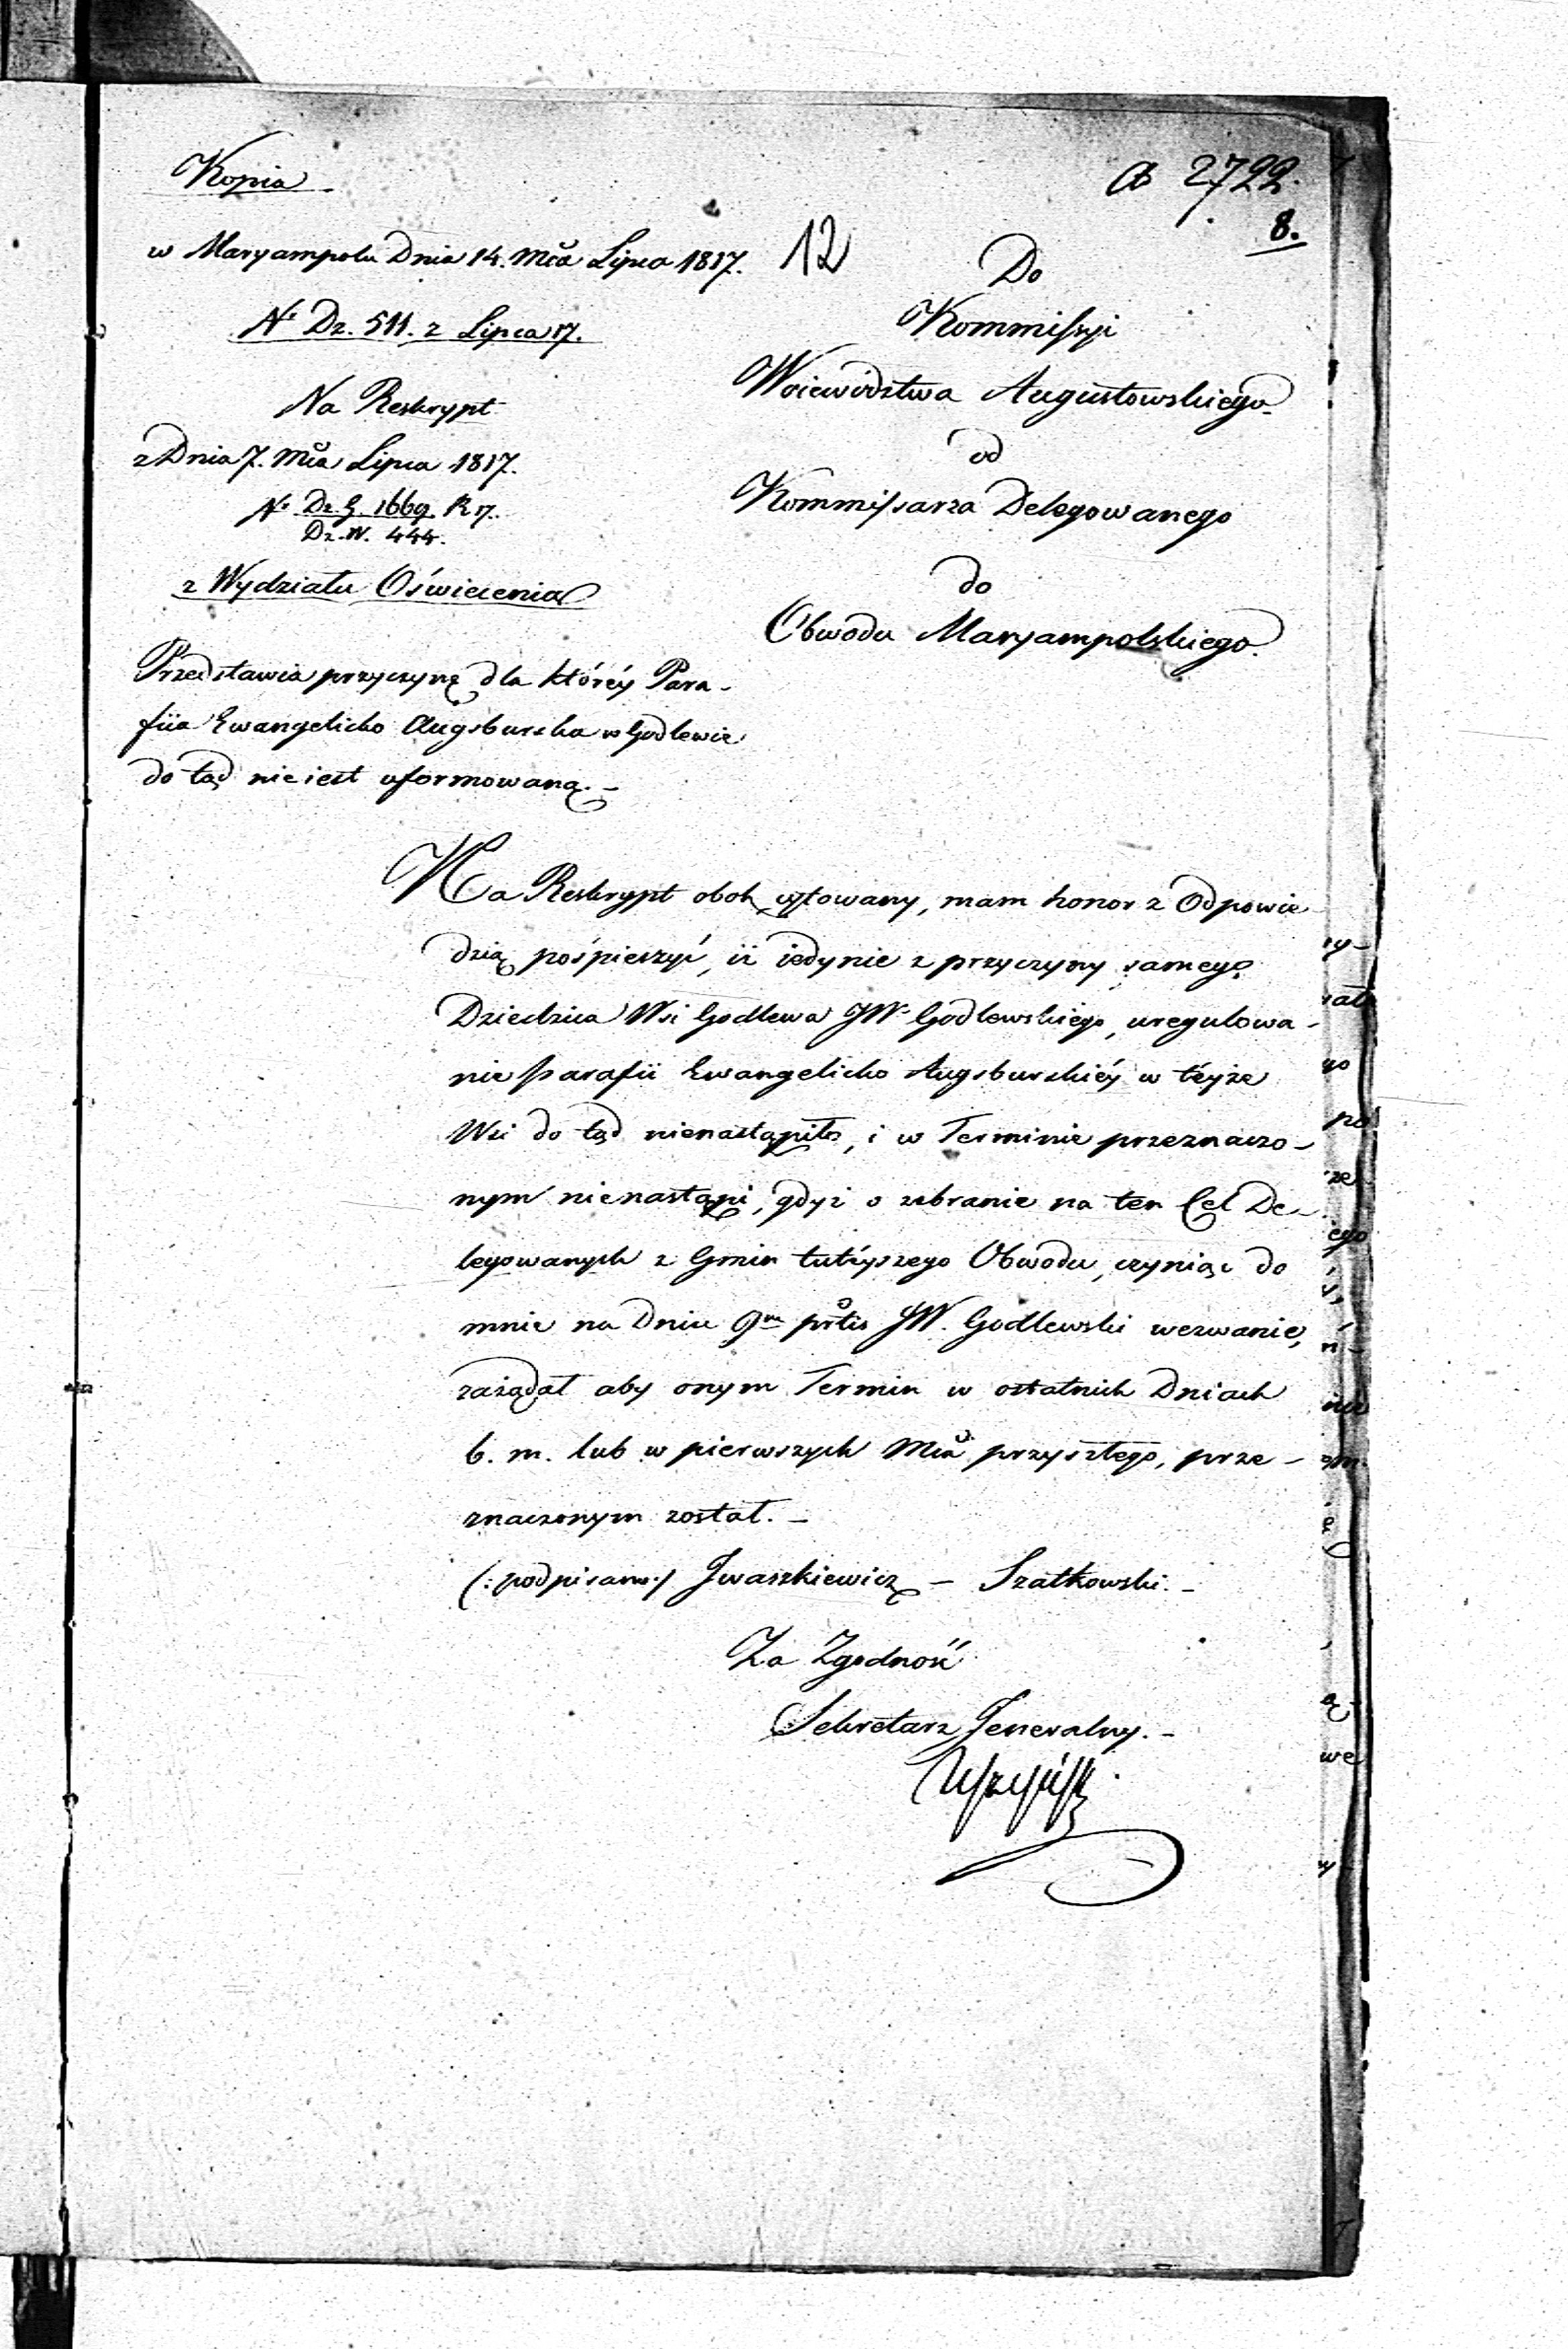 Kopia
ad 2722.
8.
12
w Maryampolu Dnia 14. Mca Lipca 1817.
No Dz. 511. z Lipca 17.
Na Reskrypt
z Dnia 7. Mca Lipca 1817.
No Dz. G. 1669. R 17.
Dz. W. 444.
z Wydziału Oświecenia
Przedstawia przyczynę dla któréy Para-
fiia Ewangelicko Augsburska w Godlewie
do tąd nie iest uformowaną. -
Do
Kommissyi
Woiewództwa Augustowskiego
od
Kommissarza Delegowanego
do
Obwodu Maryampolskiego.
Na Reskrypt obok cytowany, mam honor z Odpowie
dzią pośpieszyć, iż iedynie z przyczyny samego
Dziedzica Wsi Godlewa JW. Godlewskiego, uregulowa-
nie parafii Ewangelicko Augsburskiéy w téyże
Wsi do tąd nienastąpiło, i w Terminie przeznaczo-
nym nienastąpi, gdyż o zebranie na ten Cel De-
legowanych z Gmin tutéyszego Obwodu, czyniąc do
mnie na Dniu 9m JW. Godlewski wezwanie,
zażądał aby onym Termin w ostatnich Dniach
b. m. lub w pierwszych Mca przyszłego, prze-
znaczonym został. -
(: podpisano:) Iwaszkiewicz - Szatkowski. -
Za Zgodność
Sekretarz Jeneralny. -